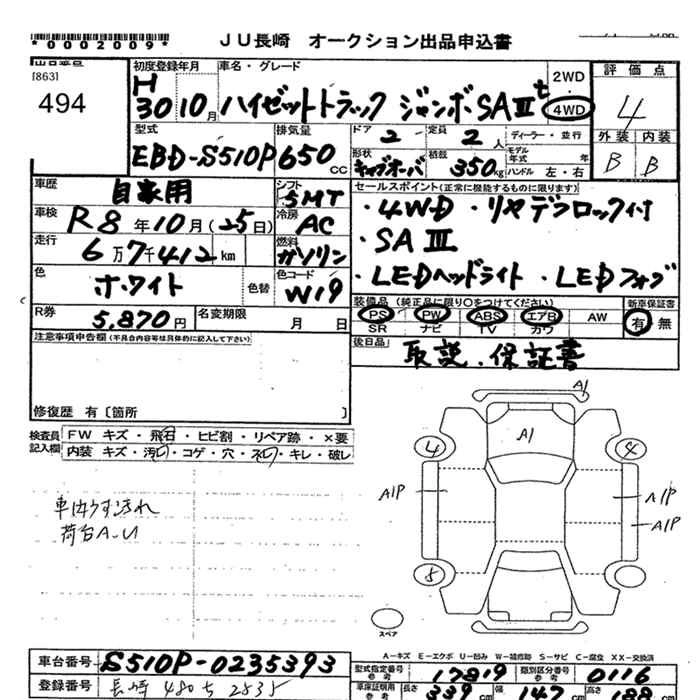 *0002009*
JU長崎 オークション出品申込書
[863]
494
初度登録年月
H
30 10月
車名・グレード
ハイゼットトラック ジャンボSAⅢt
2WD
4WD
評価点
4
外装 内装
B B
型式
EBD-S510P
排気量
650
CC
ドア
2
定員
2人
ディーラー・並行
形状
キャブオーバ
積載
350kg
モデル年式 年
ハンドル 左・右
車歴
自家用
シフト
5MT
車検
R8年10月(25日)
冷房
AC
走行
6万7千412km
燃料
ガソリン
色
ホワイト
色替
色コード
W19
R券
5,870円
名変期限
月 日
セールスポイント(正常に機能するものに限ります)
・4WD ・リヤデフロック付
・SAⅢ
・LEDヘッドライト ・LEDフォグ
装備品(純正品に限り○をつけてください)
PS PW ABS エアB AW
SR ナビ TV カワ
新車保証書
有・無
後日品
取説・保証書
注意事項申告欄(不具合内容等は具体的に記入して下さい)
修復歴 有〔箇所 〕
検査員記入欄
FW キズ・飛石・ヒビ割・リペア跡・×要
内装 キズ・汚レ・コゲ・穴・スレ・キレ・破レ
車内うす汚れ
荷台A-U
A1
A1
4
4
A1P
A1P
A1P
5
スペア
A-キズ E-エクボ U-凹み W-補修跡 S-サビ C-腐食 XX-交換済
車台番号
S510P-0235393
登録番号
長崎 480ち 2535
型式指定番号
参考
17819
類別区分番号
参考
0116
車庫証明用
参考
長さ
339cm
幅
147cm
高さ
188cm